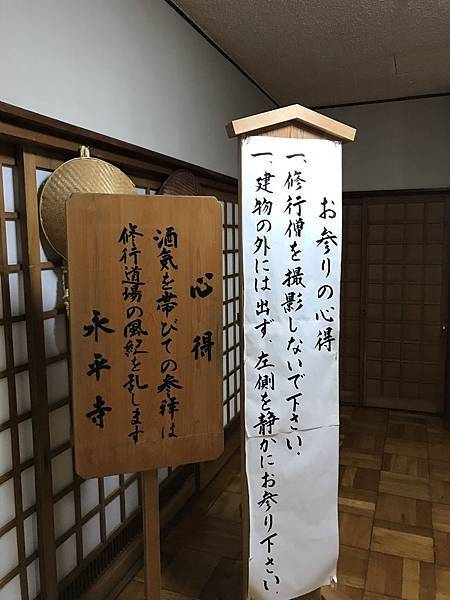 お参りの心得
一、修行僧を撮影しないで下さい.
一、建物の外には出ず、左側を静かにお参り下さい.
心得
酒気を帯びての参拝は
修行道場の風紀を乱します
永平寺